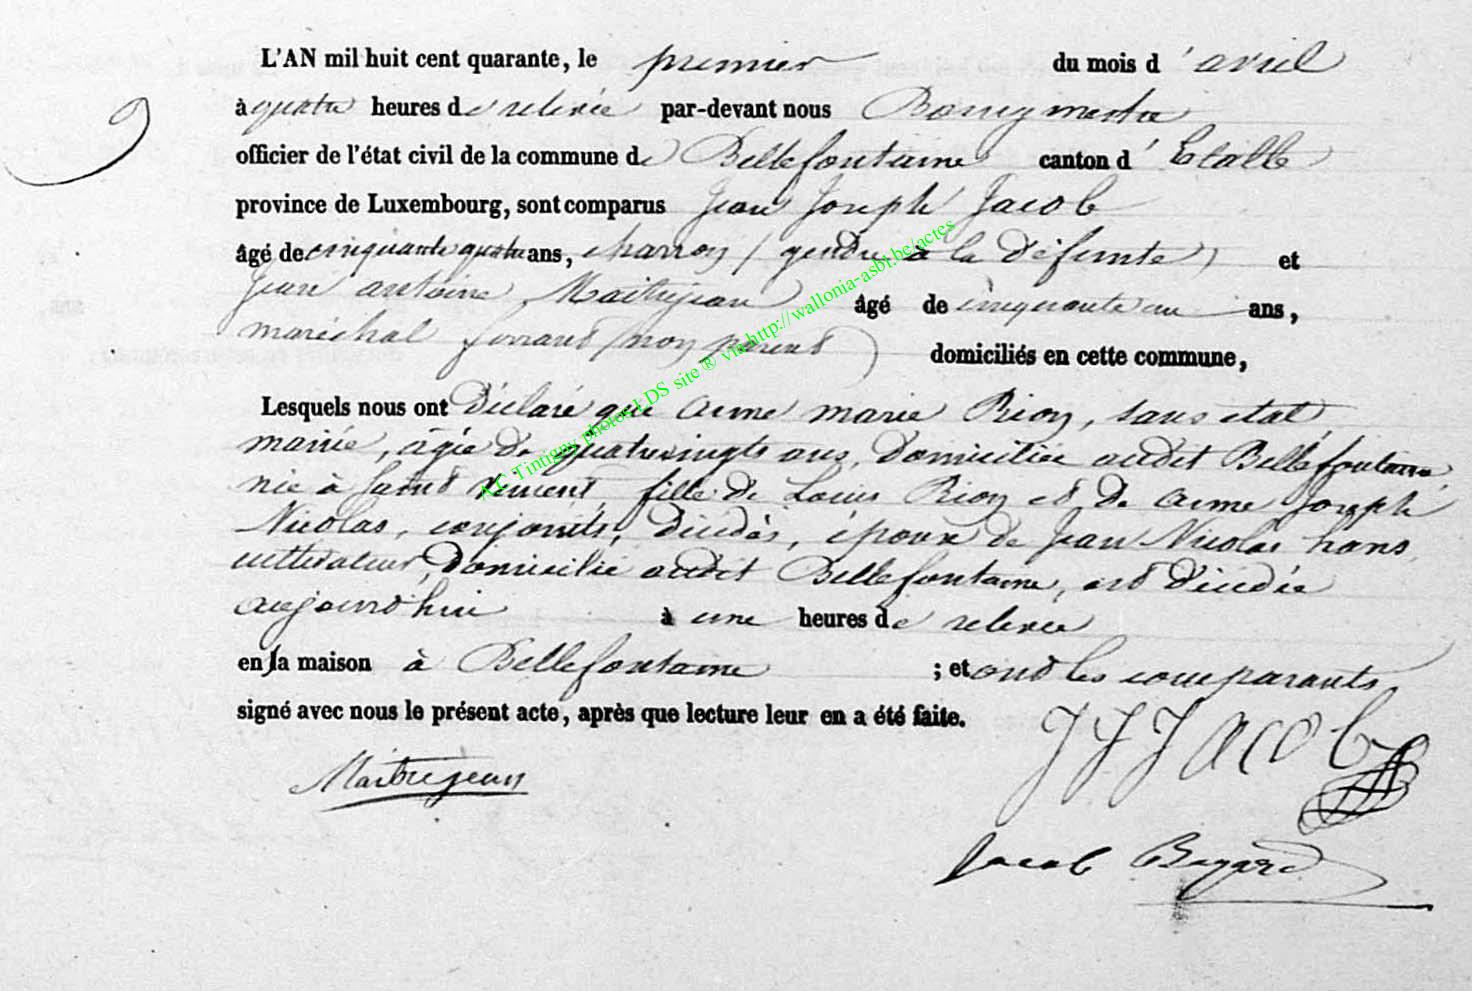 L'AN mil huit cent quarante, le premier du mois d'avril
à quatre heures de relevée par-devant nous Bourgmestre
officier de l'état civil de la commune de Bellefontaine canton d'Etalle
province de Luxembourg, sont comparus Jean Joseph Jacob
âgé de cinquante quatre ans, charron (gendre à la défunte) et
Jean antoine Maitrejean âgé de cinquante un ans,
maréchal ferrant (non parent) domiciliés en cette commune,
Lesquels nous ont déclaré que anne marie Rion, sans état,
mariée, âgée de quatrevingts ans, domiciliée audit Bellefontaine,
née à Saint Vincent, fille de Louis Rion et de anne Joseph
Nicolas, conjoints, décédés, épouse de Jean Nicolas hans,
cultivateur, domicilié audit Bellefontaine, est décédée
aujourd'hui à une heures de relevée
en sa maison à Bellefontaine ; et ont les comparants
signé avec nous le présent acte, après que lecture leur en a été faite.
Maitrejean
JJ Jacob
Jacob
AC Tintigny photos LDS site ® via http://wallonia-asbl.be/actes
9